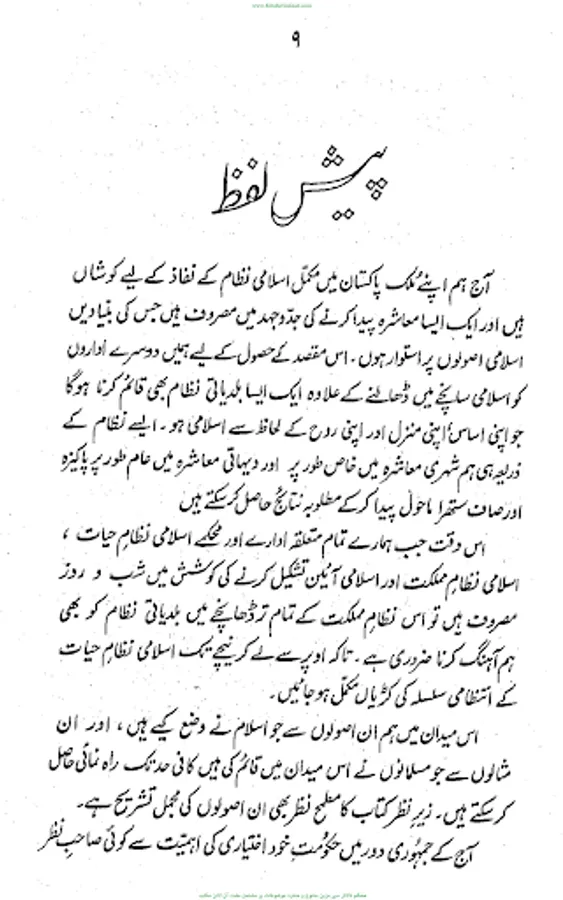 www.KitaboSunnat.com
۹
پیش لفظ
آج ہم اپنے مُلک پاکستان میں مکمّل اسلامی نظام کے نفاذ کے لیے کوشاں
ہیں اور ایک ایسا معاشرہ پیدا کرنے کی جدّ و جہد میں مصروف ہیں جس کی بنیادیں
اسلامی اصولوں پر استوار ہوں۔ اس مقصد کے حصول کے لیے ہمیں دوسرے اداروں
کو اسلامی سانچے میں ڈھالنے کے علاوہ ایک ایسا بلدیاتی نظام بھی قائم کرنا ہوگا
جو اپنی اساس، اپنی منزل اور اپنی روح کے لحاظ سے اسلامی ہو۔ ایسے نظام کے
ذریعہ ہی ہم شہری معاشرہ میں خاص طور پر اور دیہاتی معاشرہ میں عام طور پر پاکیزہ
اور صاف ستھرا ماحول پیدا کر کے مطلوبہ نتائج حاصل کر سکتے ہیں
اس وقت جب ہمارے تمام متعلقہ ادارے اور محکمے اسلامی نظامِ حیات ،
اسلامی نظامِ مملکت اور اسلامی آئین تشکیل کرنے کی کوشش میں شب و روز
مصروف ہیں تو اس نظامِ مملکت کے تمام تر ڈھانچے میں بلدیاتی نظام کو بھی
ہم آہنگ کرنا ضروری ہے۔ تاکہ اوپر سے لے کر نیچے تک اسلامی نظامِ حیات
کے انتظامی سلسلہ کی کڑیاں مکمّل ہو جائیں۔
اس میدان میں ہم ان اصولوں سے جو اسلام نے وضع کیے ہیں ، اور ان
مثالوں سے جو مسلمانوں نے اس میدان میں قائم کی ہیں کافی حد تک راہ نمائی حاصل
کر سکتے ہیں۔ زیرِ نظر کتاب کا مطمح نظر بھی ان اصولوں کی مجمل تشریح ہے۔
آج کے جمہوری دور میں حکومتِ خود اختیاری کی اہمیّت سے کوئی صاحبِ نظر